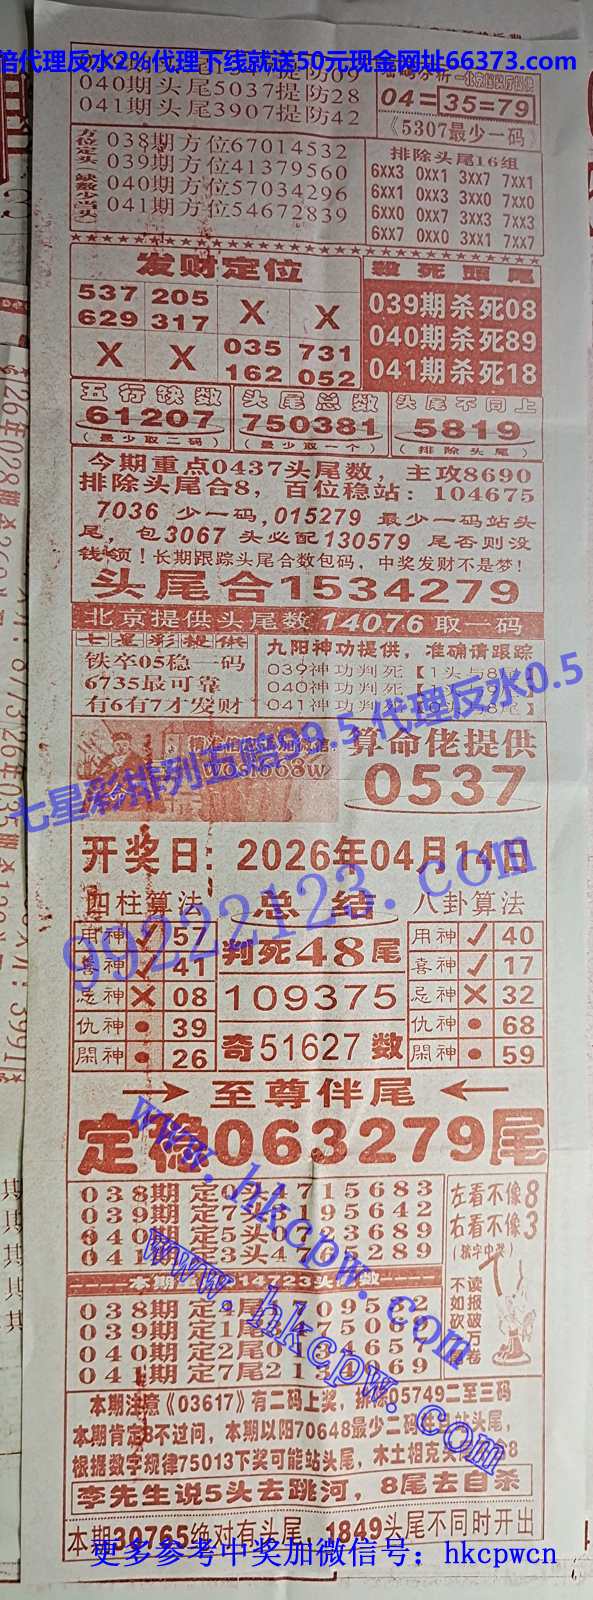 倍代理反水2%代理下线就送50元现金网址66373.com
040期头尾5037提防28
041期头尾3907提防42
04=35=79
《5307最少一码》
方位定头
缺数少当头
038期方位67014532
039期方位41379560
040期方位57034296
041期方位54672839
排除头尾16组
6XX3 0XX1 3XX7 7XX1
6XX1 0XX3 3XX0 7XX0
6XX0 0XX7 3XX3 7XX3
6XX7 0XX0 3XX1 7XX7
发财定位
537 205 X X
629 317
X X 035 731
162 052
杀死头尾
039期杀死08
040期杀死89
041期杀死18
五行铁数
61207
(最少取二码)
头尾总数
750381
(最少取一个)
头尾不同上
5819
(排除头尾)
今期重点0437头尾数,主攻8690
排除头尾合8,百位稳站:104675
7036 少一码,015279 最少一码站头
尾,包3067 头必配130579 尾否则没
钱领!长期跟踪头尾合数包码,中奖发财不是梦!
头尾合1534279
北京提供头尾数14076取一码
七星彩提供
铁卒05稳一码
6735最可靠
有6有7才发财
九阳神功提供,准确请跟踪
039神功判死【1头与8尾】
040神功判死
041神功判死
七星彩排列五赔99.5 代理反水0.5
算命佬提供
0537
开奖日:2026年04月14日
99222123.com
四柱算法
用神 ✓ 57
喜神 ✓ 41
忌神 ✕ 08
仇神 ● 39
閑神 ● 26
总结
判死48尾
109375
奇51627数
八卦算法
用神 ✓ 40
喜神 ✓ 17
忌神 ✕ 32
仇神 ● 68
閑神 ● 59
→至尊伴尾←
定稳063279尾
www.hkcpw.com
038期定0头4715683
039期定7头
040期定5头0723689
041期定3头
左看不像8
右看不像3
(猜字中奖)
读报破万卷
不如砍
038期定4尾
039期定1尾
040期定2尾
041期定7尾
www.hkcpw.com
本期注意《03617》有二码上奖,排除05749二至三码
本期肯定8不过问,本期以阳70648最少二码并且站头尾,
根据数字规律75013下奖可能站头尾,木土相克
李先生说5头去跳河,8尾去自杀
本期30765绝对有头尾,1849头尾不同时开出
更多参考中奖加微信号:hkcpwcn